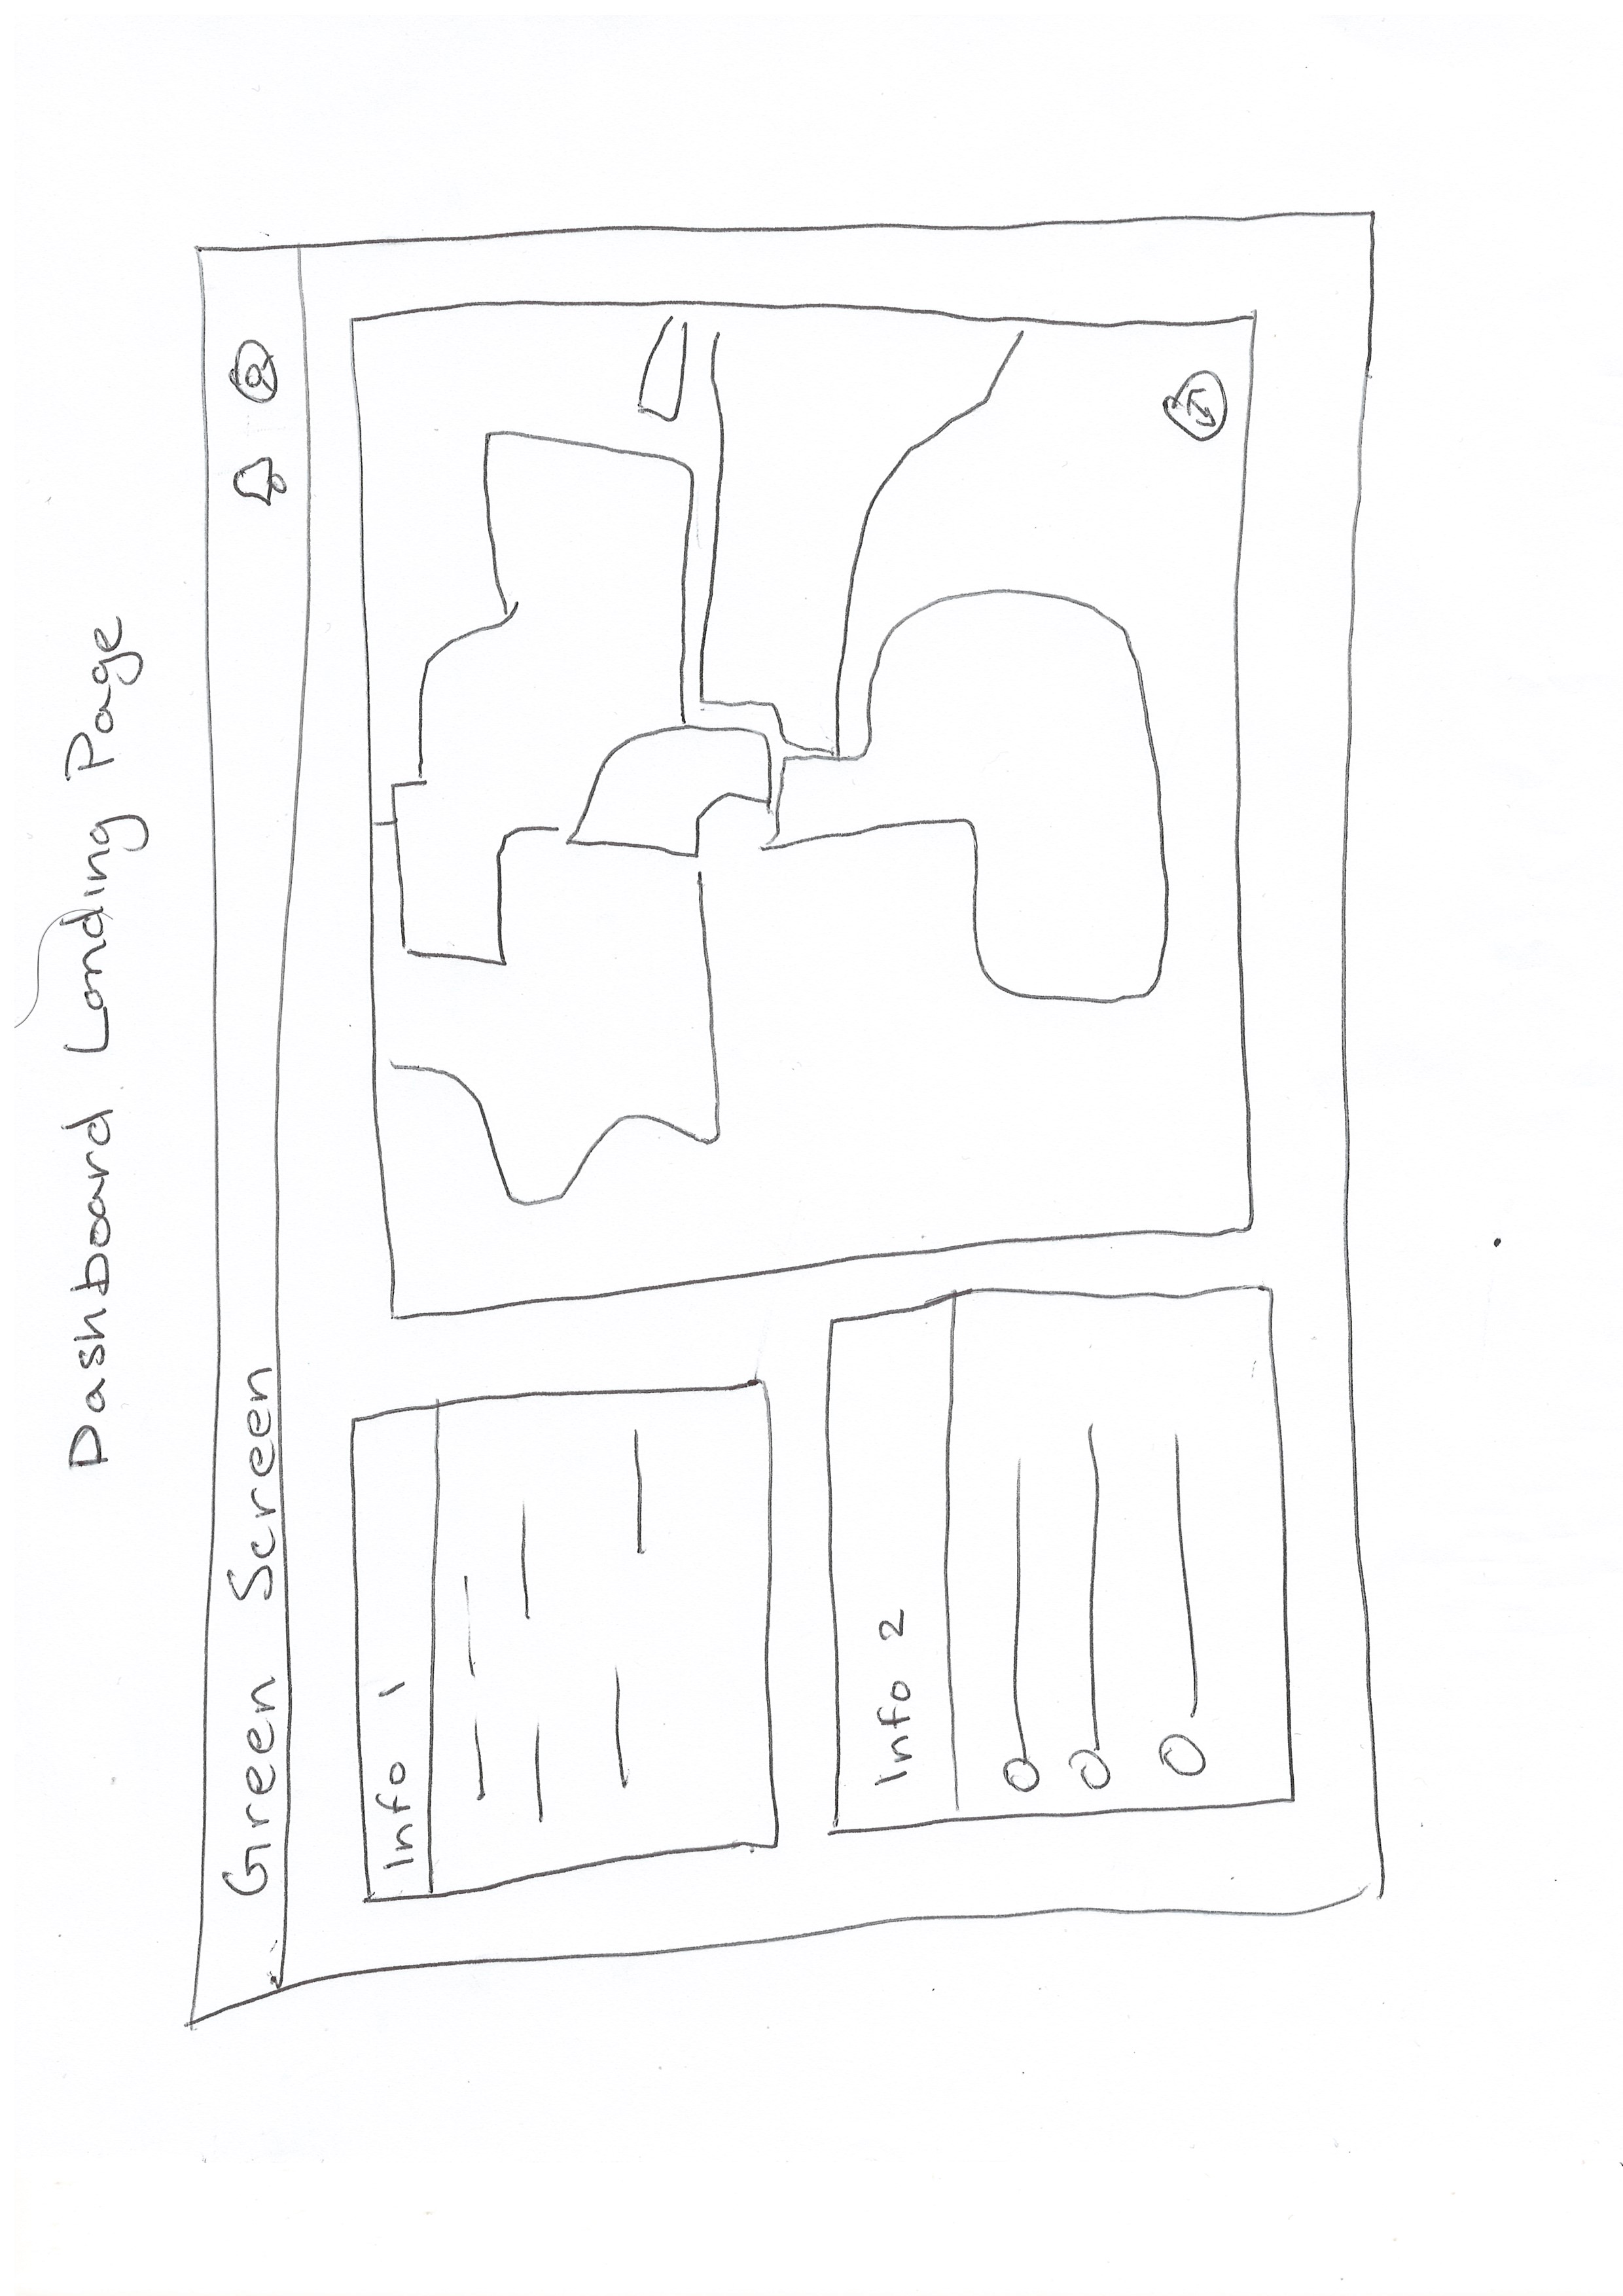 Dashboard Landing Page
Green Screen
Info 1
Info 2